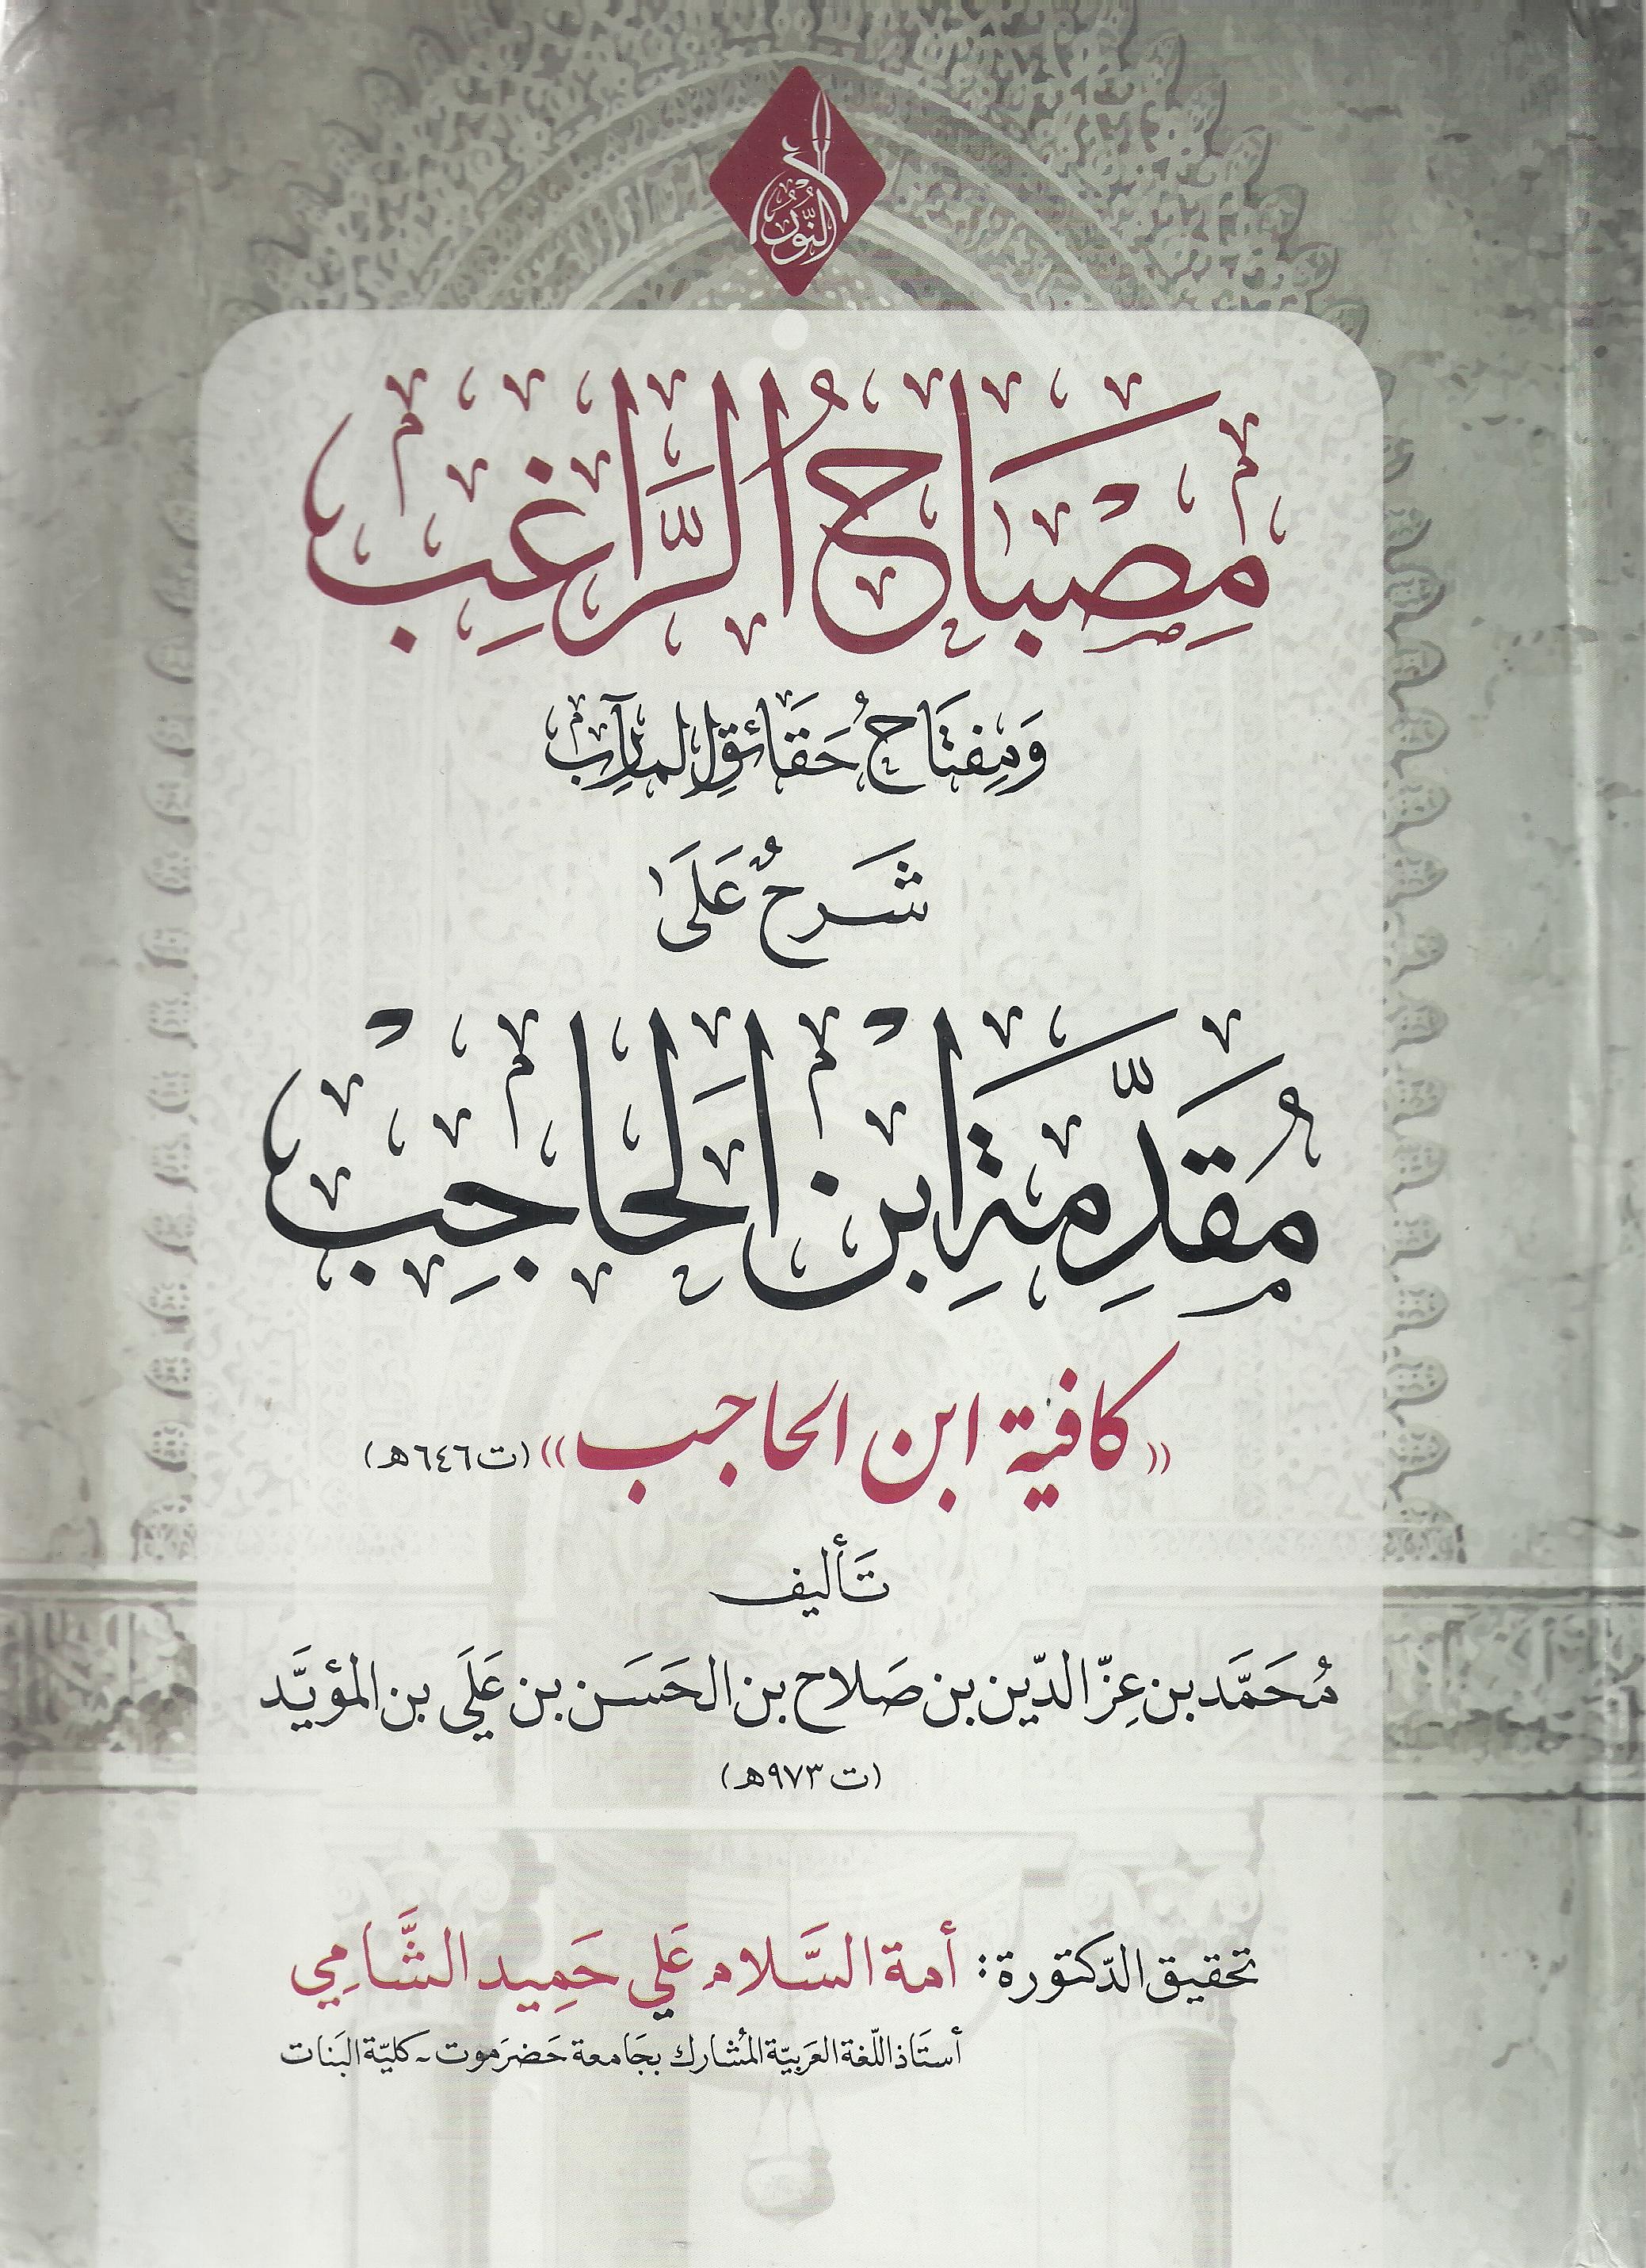 النور
مِصْبَاحُ الرَّاغِبِ
وَمِفتَاحُ حَقَائقِ المآرِبِ
شَرحٌ عَلَى
مُقَدِّمَةِ ابنِ الحَاجِبْ
«كافية ابن الحاجب» (ت ٦٤٦هـ)
تَأليف
مُحَمَّد بن عِزّ الدّين بن صَلاح بن الحَسَن بن عَلَي بن المؤيَّد
(ت ٩٧٣هـ)
تحقيق الدّكتورة: أمة السَّلام عَلي حَمِيد الشَّامِي
أستَاذ اللّغة العَربيّة المُشارك بجَامعة حَضرَموت - كليّة البَنات